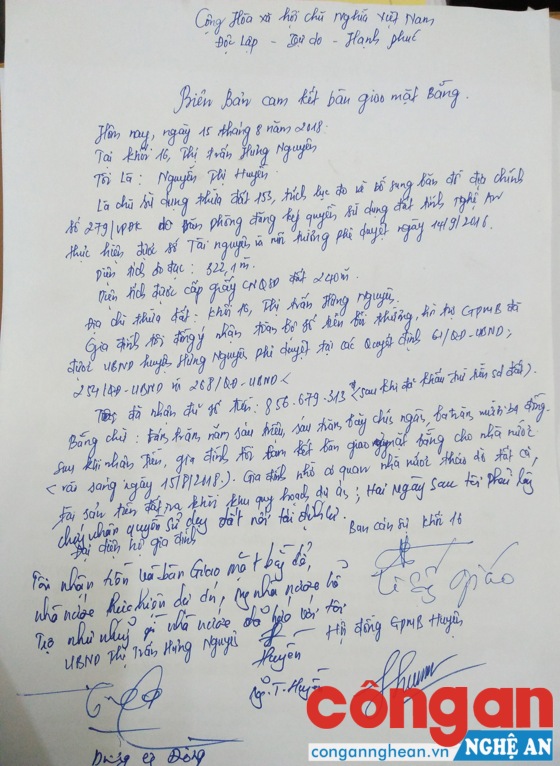 Cộng Hòa xã hội chủ nghĩa Việt Nam
Độc Lập - Tự do - Hạnh phúc
Biên Bản cam kết bàn giao mặt Bằng.
Hôm nay, ngày 15 tháng 8 năm 2018.
Tại khối 16, Thị trấn Hưng Nguyên
Tôi Là: Nguyễn Thị Huyền
Là chủ sử dụng thửa đất 153, trích lục đo vẽ bổ sung bản đồ địa chính
số 279/VPĐK do Văn phòng đăng ký quyền sử dụng đất tỉnh Nghệ An
thực hiện được sở Tài nguyên và môi trường phê duyệt ngày 14/9/2016.
Diện tích đo đạc: 322,1 m.
Diện tích được cấp giấy CNQSD đất 240 m.
Địa chỉ thửa đất: Khối 16, Thị trấn Hưng Nguyên.
Gia đình tôi đồng ý nhận toàn bộ số tiền bồi thường, hỗ trợ GPMB đã
được UBND huyện Hưng Nguyên phê duyệt tại các Quyết định 61/QĐ-UBND;
254/QĐ-UBND và 268/QĐ-UBND
đã nhận đủ số tiền: 856.679.313 (sau khi đã khấu trừ tiền sd đất).
Bằng chữ: Tám trăm, năm sáu triệu, sáu trăm, bảy chín ngàn, ba trăm mười ba đồng.
Sau khi nhận tiền, gia đình tôi cam kết bàn giao ngay mặt bằng cho nhà nước
(vào sáng ngày 15/8/2018.). Gia đình nhờ cơ quan nhà nước tháo dỡ tất cả,
tài sản trên đất ra khỏi khu quy hoạch dự án; Hai ngày sau tôi phải lấy
chứng nhận quyền sử dụng đất nơi tái định cư.
Đại diện hộ gia đình
Ban cán sự khối 16
Tôi nhận tiền và bàn Giao mặt bằng để,
nhà nước thực hiện dự án, nhà nước hỗ
Trợ như những gì nhà nước đã hứa với tôi
UBND Thị Trấn Hưng Nguyên
Huyền
Hội đồng GPMB Huyện
Ng.T.Huyền
côngan
NGHỆ AN
congannghean.vn